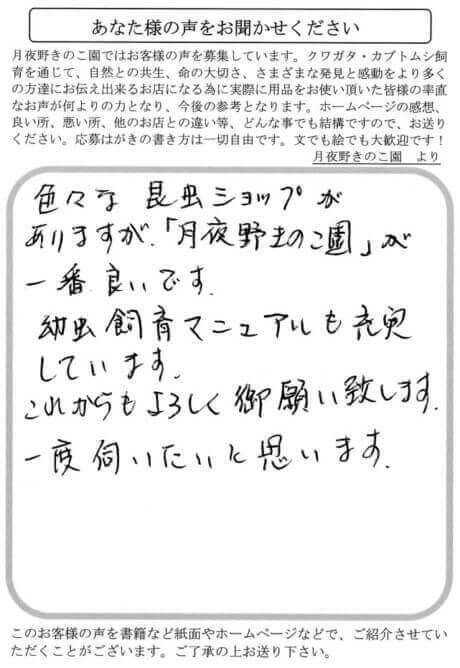 あなた様の声をお聞かせください
月夜野きのこ園ではお客様の声を募集しています。クワガタ・カブトムシ飼
育を通じて、自然との共生、命の大切さ、さまざまな発見と感動をより多く
の方達にお伝え出来るお店になる為に実際に用品をお使い頂いた皆様の率直
なお声が何よりの力となり、今後の参考となります。ホームページの感想、
良い所、悪い所、他のお店との違い等、どんな事でも結構ですので、お送り
ください。応募はがきの書き方は一切自由です。文でも絵でも大歓迎です！
月夜野きのこ園　より
色々な 昆虫ショップが
ありますが、「月夜野きのこ園」が
一番良いです。
幼虫飼育マニュアルも充実
しています。
これからもよろしく御願い致します。
一度伺いたいと思います。
このお客様の声を書籍など紙面やホームページなどで、ご紹介させてい
ただくことがございます。ご了承の上お送り下さい。